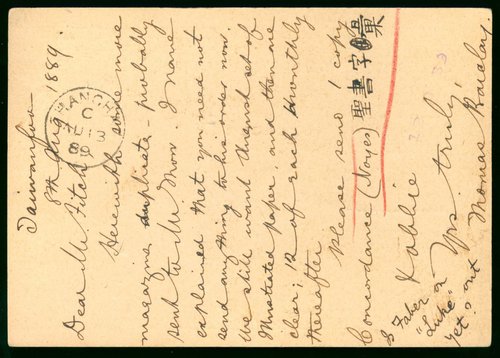 Taiwanfoo
8th Aug. 1889.
Dear Mr. Fitch,
Herewith some more
magazine duplicates - probably
sent to Mr Mow. I have
explained that you need not
send anything to his order now.
We still want August set of
Illustrated paper, and then are
clear; 12 of each monthly
thereafter
Please send 1 copy
Concordance (Noyes) 聖書字彙
Yrs. truly,
Thomas Barclay.
Is Faber on
"Luke" out
yet?
SHANGHAI
C
AU 13
89